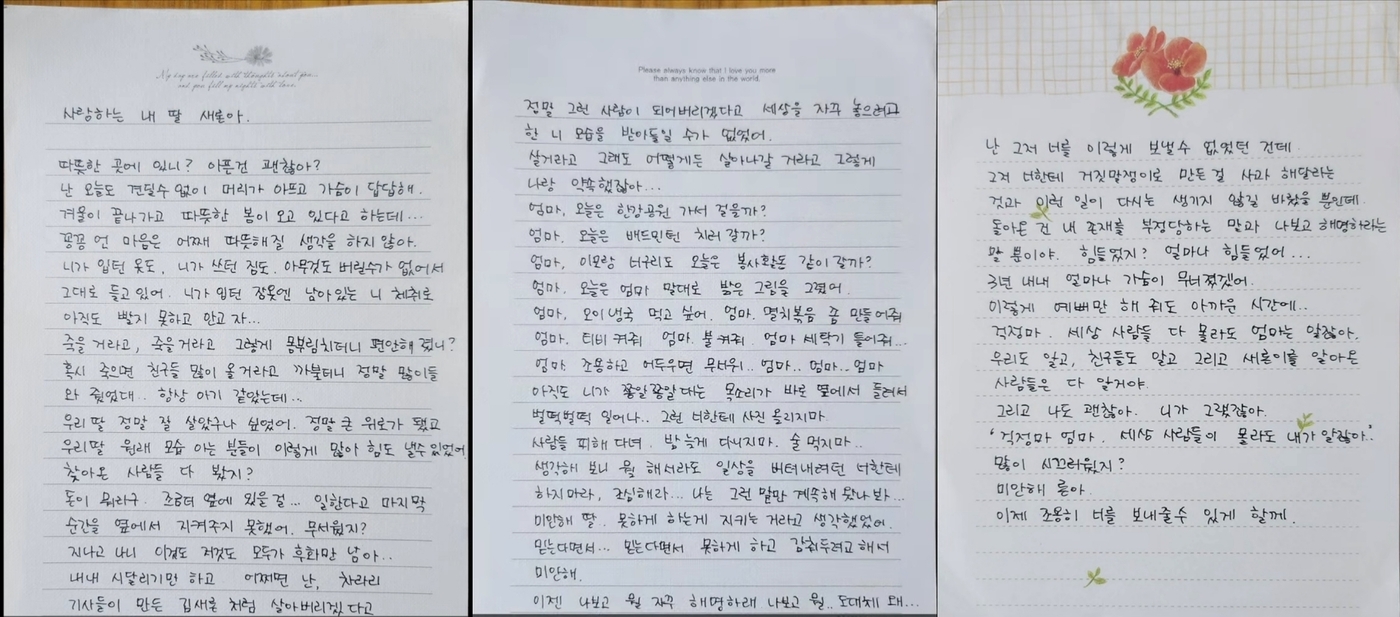 My day are filled with thoughts about you...
and you fill my nights with love.
사랑하는 내 딸 새론아.
따뜻한 곳에 있니? 아픈건 괜찮아?
난 오늘도 견딜수 없이 머리가 아프고 가슴이 답답해.
겨울이 끝나가고 따뜻한 봄이 오고 있다고 하는데...
꽁꽁 언 마음은 어째 따뜻해질 생각을 하지 않아.
니가 입던 옷도, 니가 쓰던 짐도. 아무것도 버릴수가 없어서
그대로 들고있어. 니가 입던 잠옷엔 남아있는 니 체취로
아직도 빨지 못하고 안고 자...
죽을 거라고, 죽을거라고 그렇게 몸부림치더니 편안해 졌니?
혹시 죽으면 친구들 많이 올거라고 까불더니 정말 많이들
와 줬었대.. 항상 아기 같았는데...
우리 딸 정말 잘 살았구나 싶었어. 정말 큰 위로가 됐고
우리딸 원래 모습 아는 분들이 이렇게 많아 힘도 낼수 있었어
찾아온 사람들 다 봤지?
돈이 뭐라구. 조금더 옆에 있을 걸... 일한다고 마지막
순간을 옆에서 지켜주지 못했어. 무서웠지?
지나고 나니 이것도 저것도 모두가 후회만 남아..
내내 시달리기만 하고 어쩌면 난, 차라리
기사들이 만든 김새론 처럼 살아버리겠다고
Please always know that I love you more
than anything else in the world.
정말 그런 사람이 되어버리겠다고 세상을 자꾸 놓으려고
한 니 모습을 받아들일 수가 없었어.
살거라고 그래도 어떻게든 살아나갈 거라고 그렇게
나랑 약속했잖아...
엄마, 오늘은 한강공원 가서 걸을까?
엄마. 오늘은 배드민턴 치러 갈까?
엄마, 이모랑 너구리도 오늘은 봉사활동 같이 갈까?
엄마. 오늘은 엄마 말대로 밝은 그림을 그렸어.
엄마, 오이냉국 먹고 싶어. 엄마. 멸치볶음 좀 만들어줘
엄마. 티비 켜줘 엄마. 불 켜줘. 엄마 세탁기 돌어줘...
엄마 조용하고 어두우면 무서워.. 엄마.. 엄마... 엄마
아직도 니가 쫑알쫑알대는 목소리가 바로 옆에서 들려서
벌떡벌떡 일어나.. 그런 너한테 사진 올리지마.
사람들 피해 다녀. 밤 늦게 다니지마. 술 먹지마..
생각해 보니 뭘 해서라도 일상을 버텨내려던 너한테
하지마라, 조심해라... 나는 그런 말만 계속해 왔나봐...
미안해 딸. 못하게 하는게 지키는 거라고 생각했었어.
믿는다면서... 믿는다면서 못하게 하고 감춰두려고 해서
미안해.
이젠 나보고 뭘 자꾸 해명하래 나보고 뭘.. 도대체 왜...
난 그저 너를 이렇게 보낼수 없었던 건데.
그저 너한테 거짓말쟁이로 만든걸 사과 해달라는
것과 이런 일이 다시는 생기지 않길 바랐을 뿐인데.
돌아온 건 내 존재를 부정당하는 말과 나보고 해명하라는
말 뿐이야. 힘들었지? 얼마나 힘들었어...
3년 내내 얼마나 가슴이 무너졌겠어.
이렇게 예뻐만 해 줘도 아까운 시간에...
걱정마. 세상 사람들 다 몰라도 엄마는 알잖아.
우리도 알고, 친구들도 알고 그리고 새론이를 알아온
사람들은 다 알거야.
그리고 나도 괜찮아. 니가 그랬잖아.
'걱정마 엄마. 세상 사람들이 몰라도 내가 알잖아.'
많이 시끄러웠지?
미안해 론아.
이제 조용히 너를 보내줄수 있게 할께.